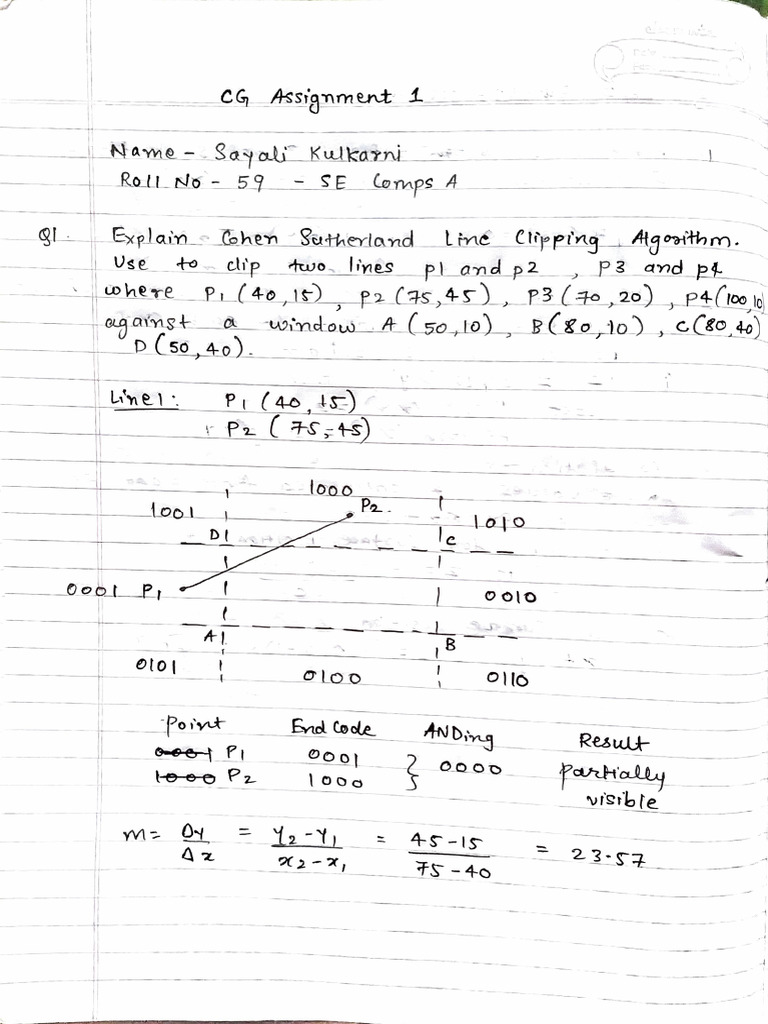 CG Assignment 1
Name - Sayali Kulkarni
Roll No - 59 - SE Comps A
Q1. Explain Cohen Sutherland Line Clipping Algorithm.
Use to clip two lines p1 and p2 , P3 and p4
where P1 (40,15) , P2 (75,45) , P3 (70,20) , P4 (100,10)
against a window A (50,10) , B(80,10) , C(80,40)
D (50,40).
Line 1 : P1 (40,15)
P2 (75,45)
1001 1000 P2. 1010
D C
0001 P1 0010
A B
0101 0100 0110
Point End Code ANDing Result
0001 P1 0001 } 0000 partially
1000 P2 1000 visible
m = Δy/Δx = Y2-Y1/x2-x1 = 45-15/75-40 = 23.57